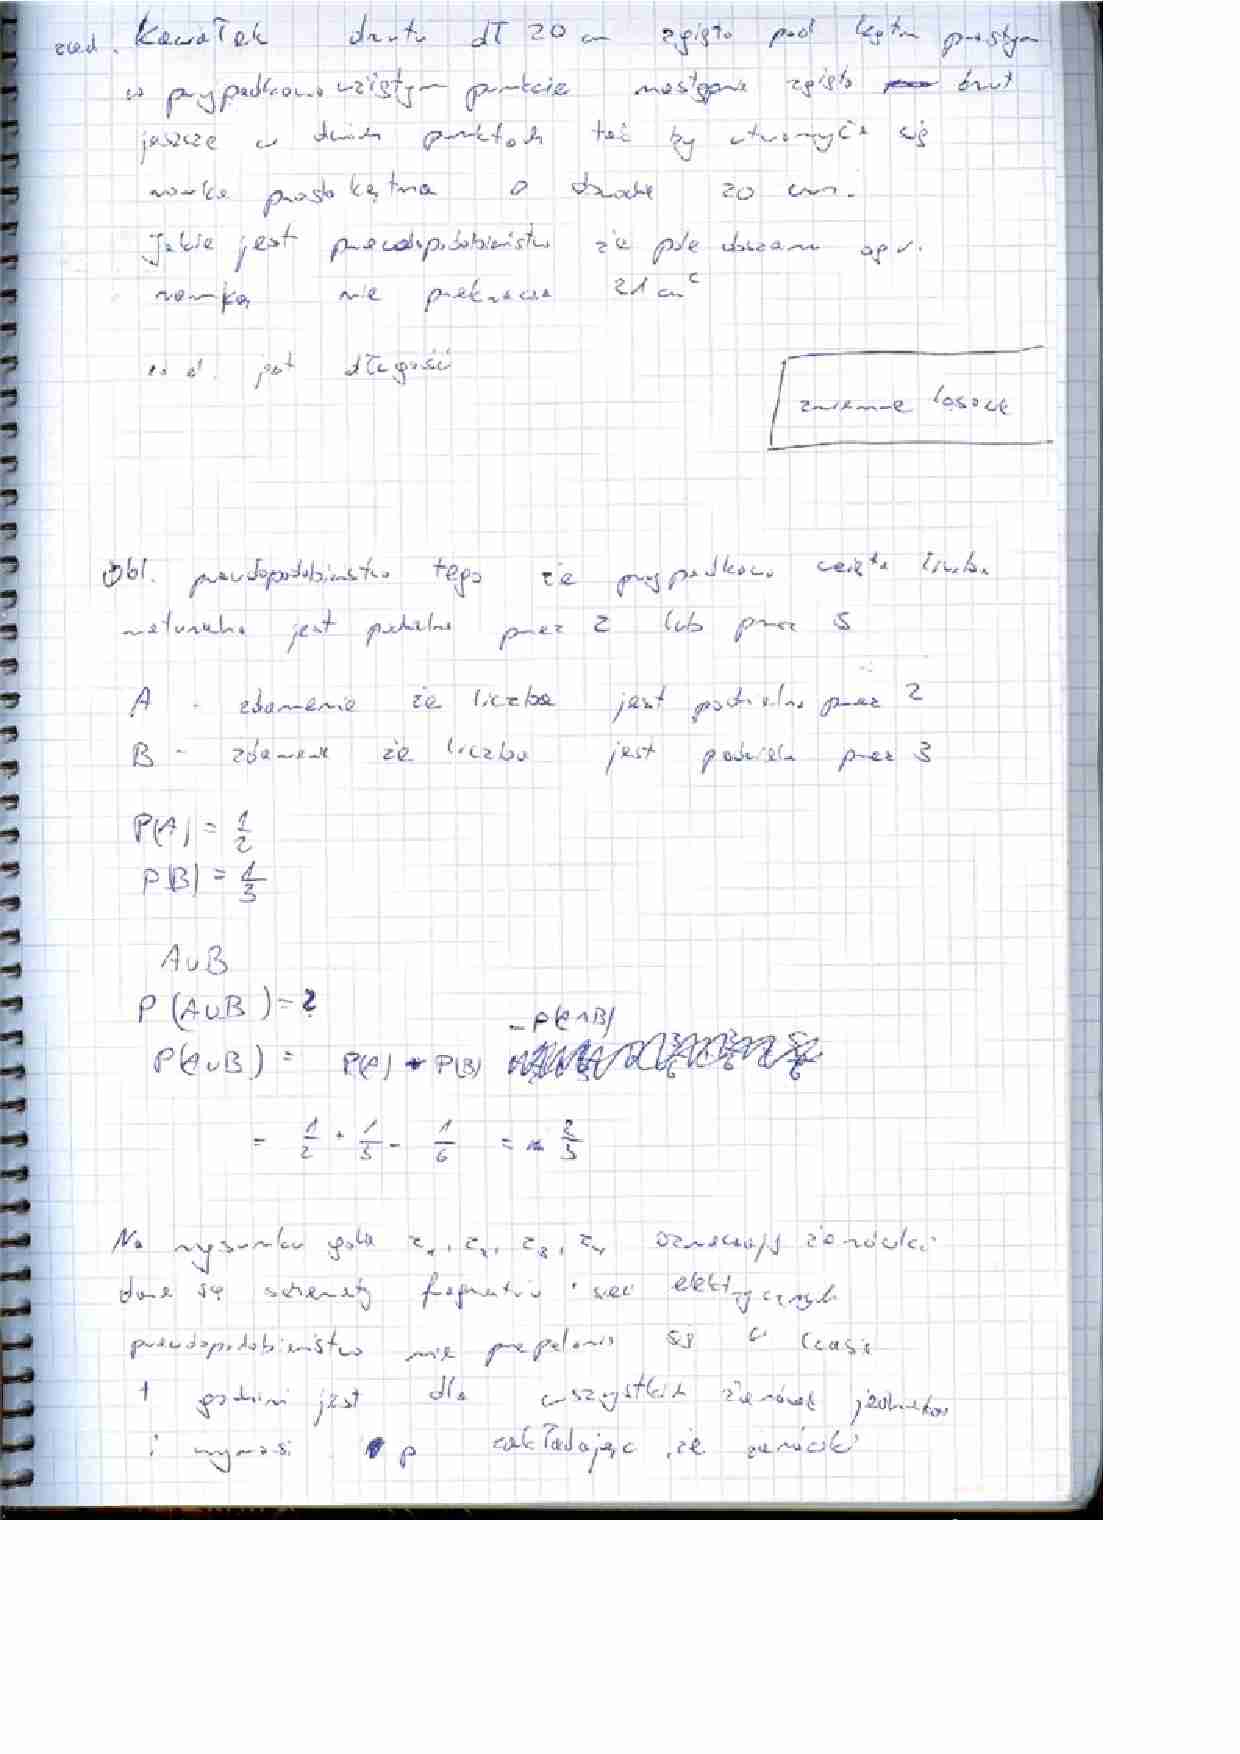 zad. Kawałek drutu dł 20 cm zgięto pod kątem prostym
w przypadkowo wziętym punkcie następnie zgięto drut
jeszcze w dwóch punktach tak by utworzyć się
ramka prostokątna o obwodzie 20 cm.
Jakie jest prawdopodobieństwo że pole obszaru ogr.
ramką nie przekracza 21 cm²
długość
zmienne losowe
Obl. prawdopodobieństwo tego że przypadkowo wzięta liczba
naturalna jest podzielna przez 2 lub przez 3
A - zdarzenie że liczba jest podzielna przez 2
B - zdarzenie że liczba jest podzielna przez 3
P(A) = 1/2
P(B) = 1/3
A∪B
P(A∪B) = ?
P(A∪B) = P(A) + P(B) - P(A∩B)
= 1/2 + 1/3 - 1/6 = 2/3
Na rysunku gdzie z₁, z₂, z₃, z₄ oznaczają żarówki
dane są schematy fragmentów sieci elektrycznych
prawdopodobieństwo nie przepalenia się w czasie
1 godziny jest dla wszystkich żarówek jednakowe
i wynosi p zakładając, że żarówki